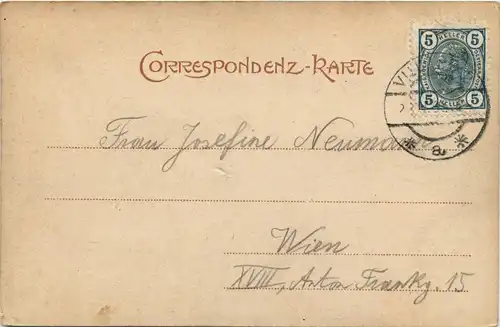 CORRESPONDENZ-KARTE
5 HELLER 5
5 HELLER 5
* a *
Frau Josefine Neumann
Wien
XVIII, Anton Frankg. 15